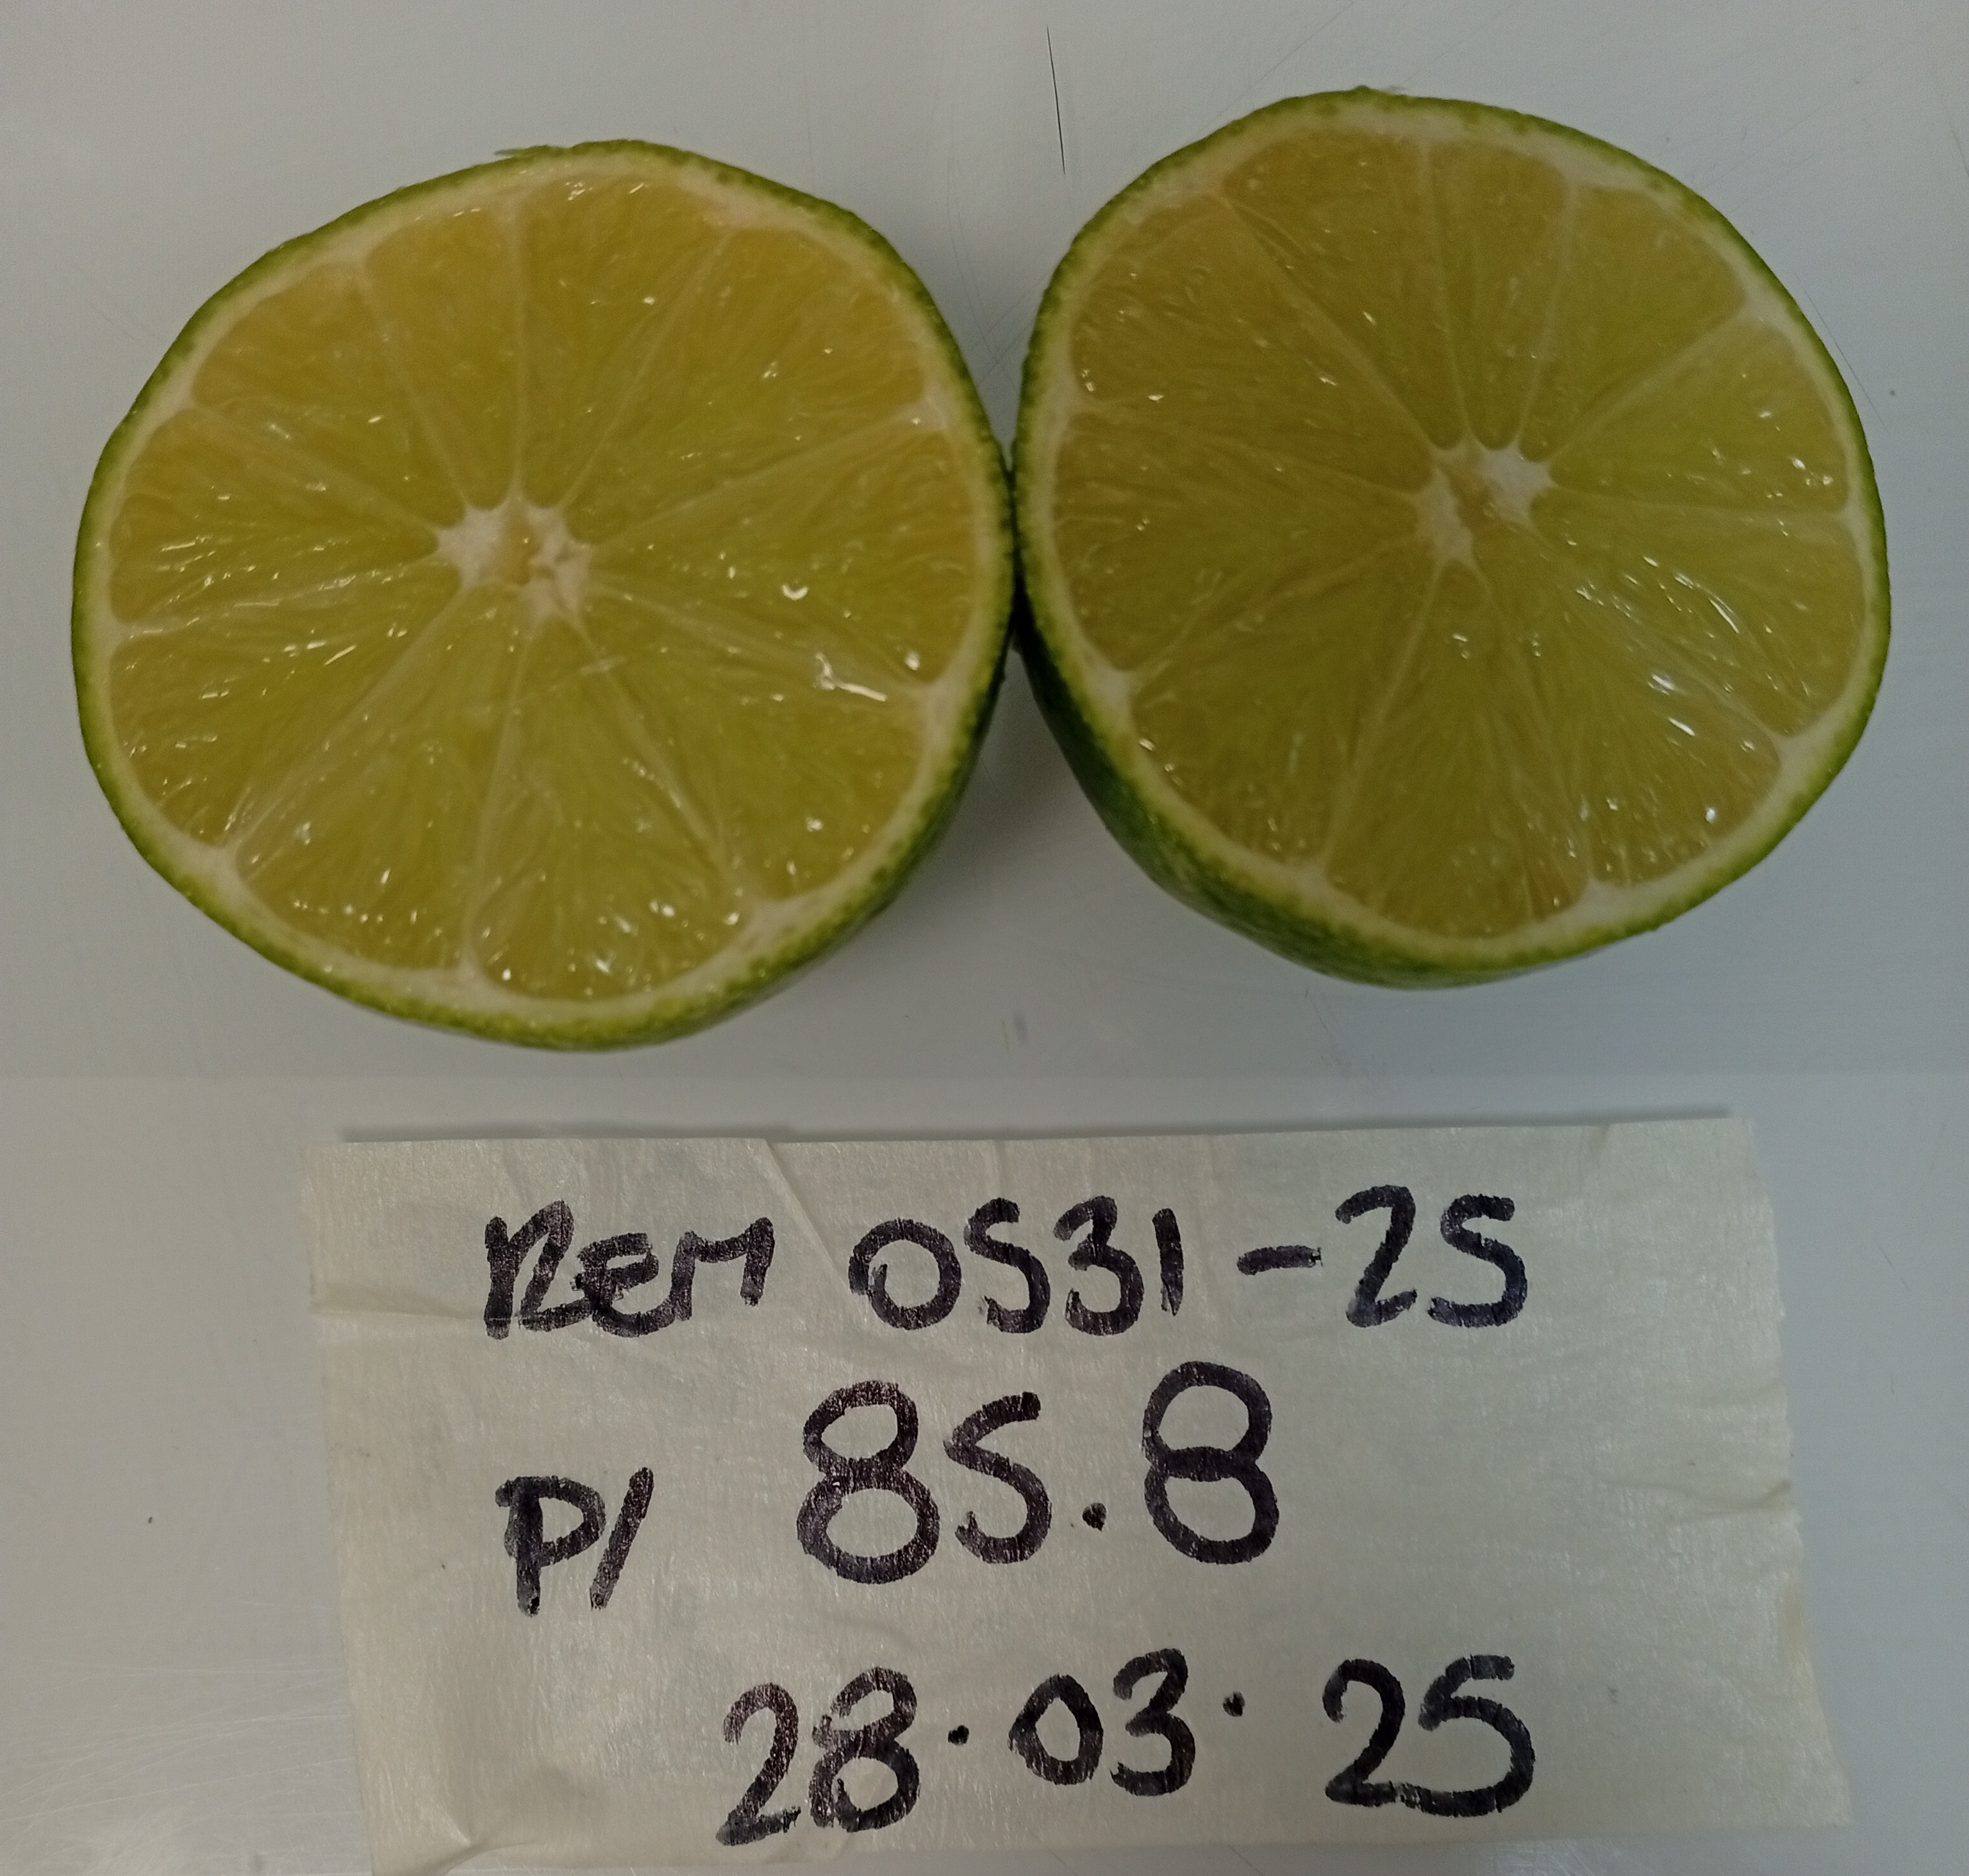 REM 0531-25
P/ 85.8
28.03.25